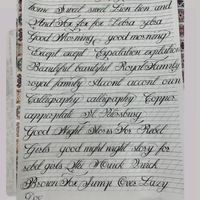 home Sweet sweet Lion lion and
And Fox fox for Zebra zebra
Good Morning good morning
Except except Expectation expectation
Beautiful beautiful Royal Family
royal family Accent accent own
Calligraphy calligraphy Copper
copperplate St. Petersburg
Good Night Stories For Rebel
Girls good night night story for
rebel girls The Quick Quick
Brown Fox Jumps Over Lazy
Dog